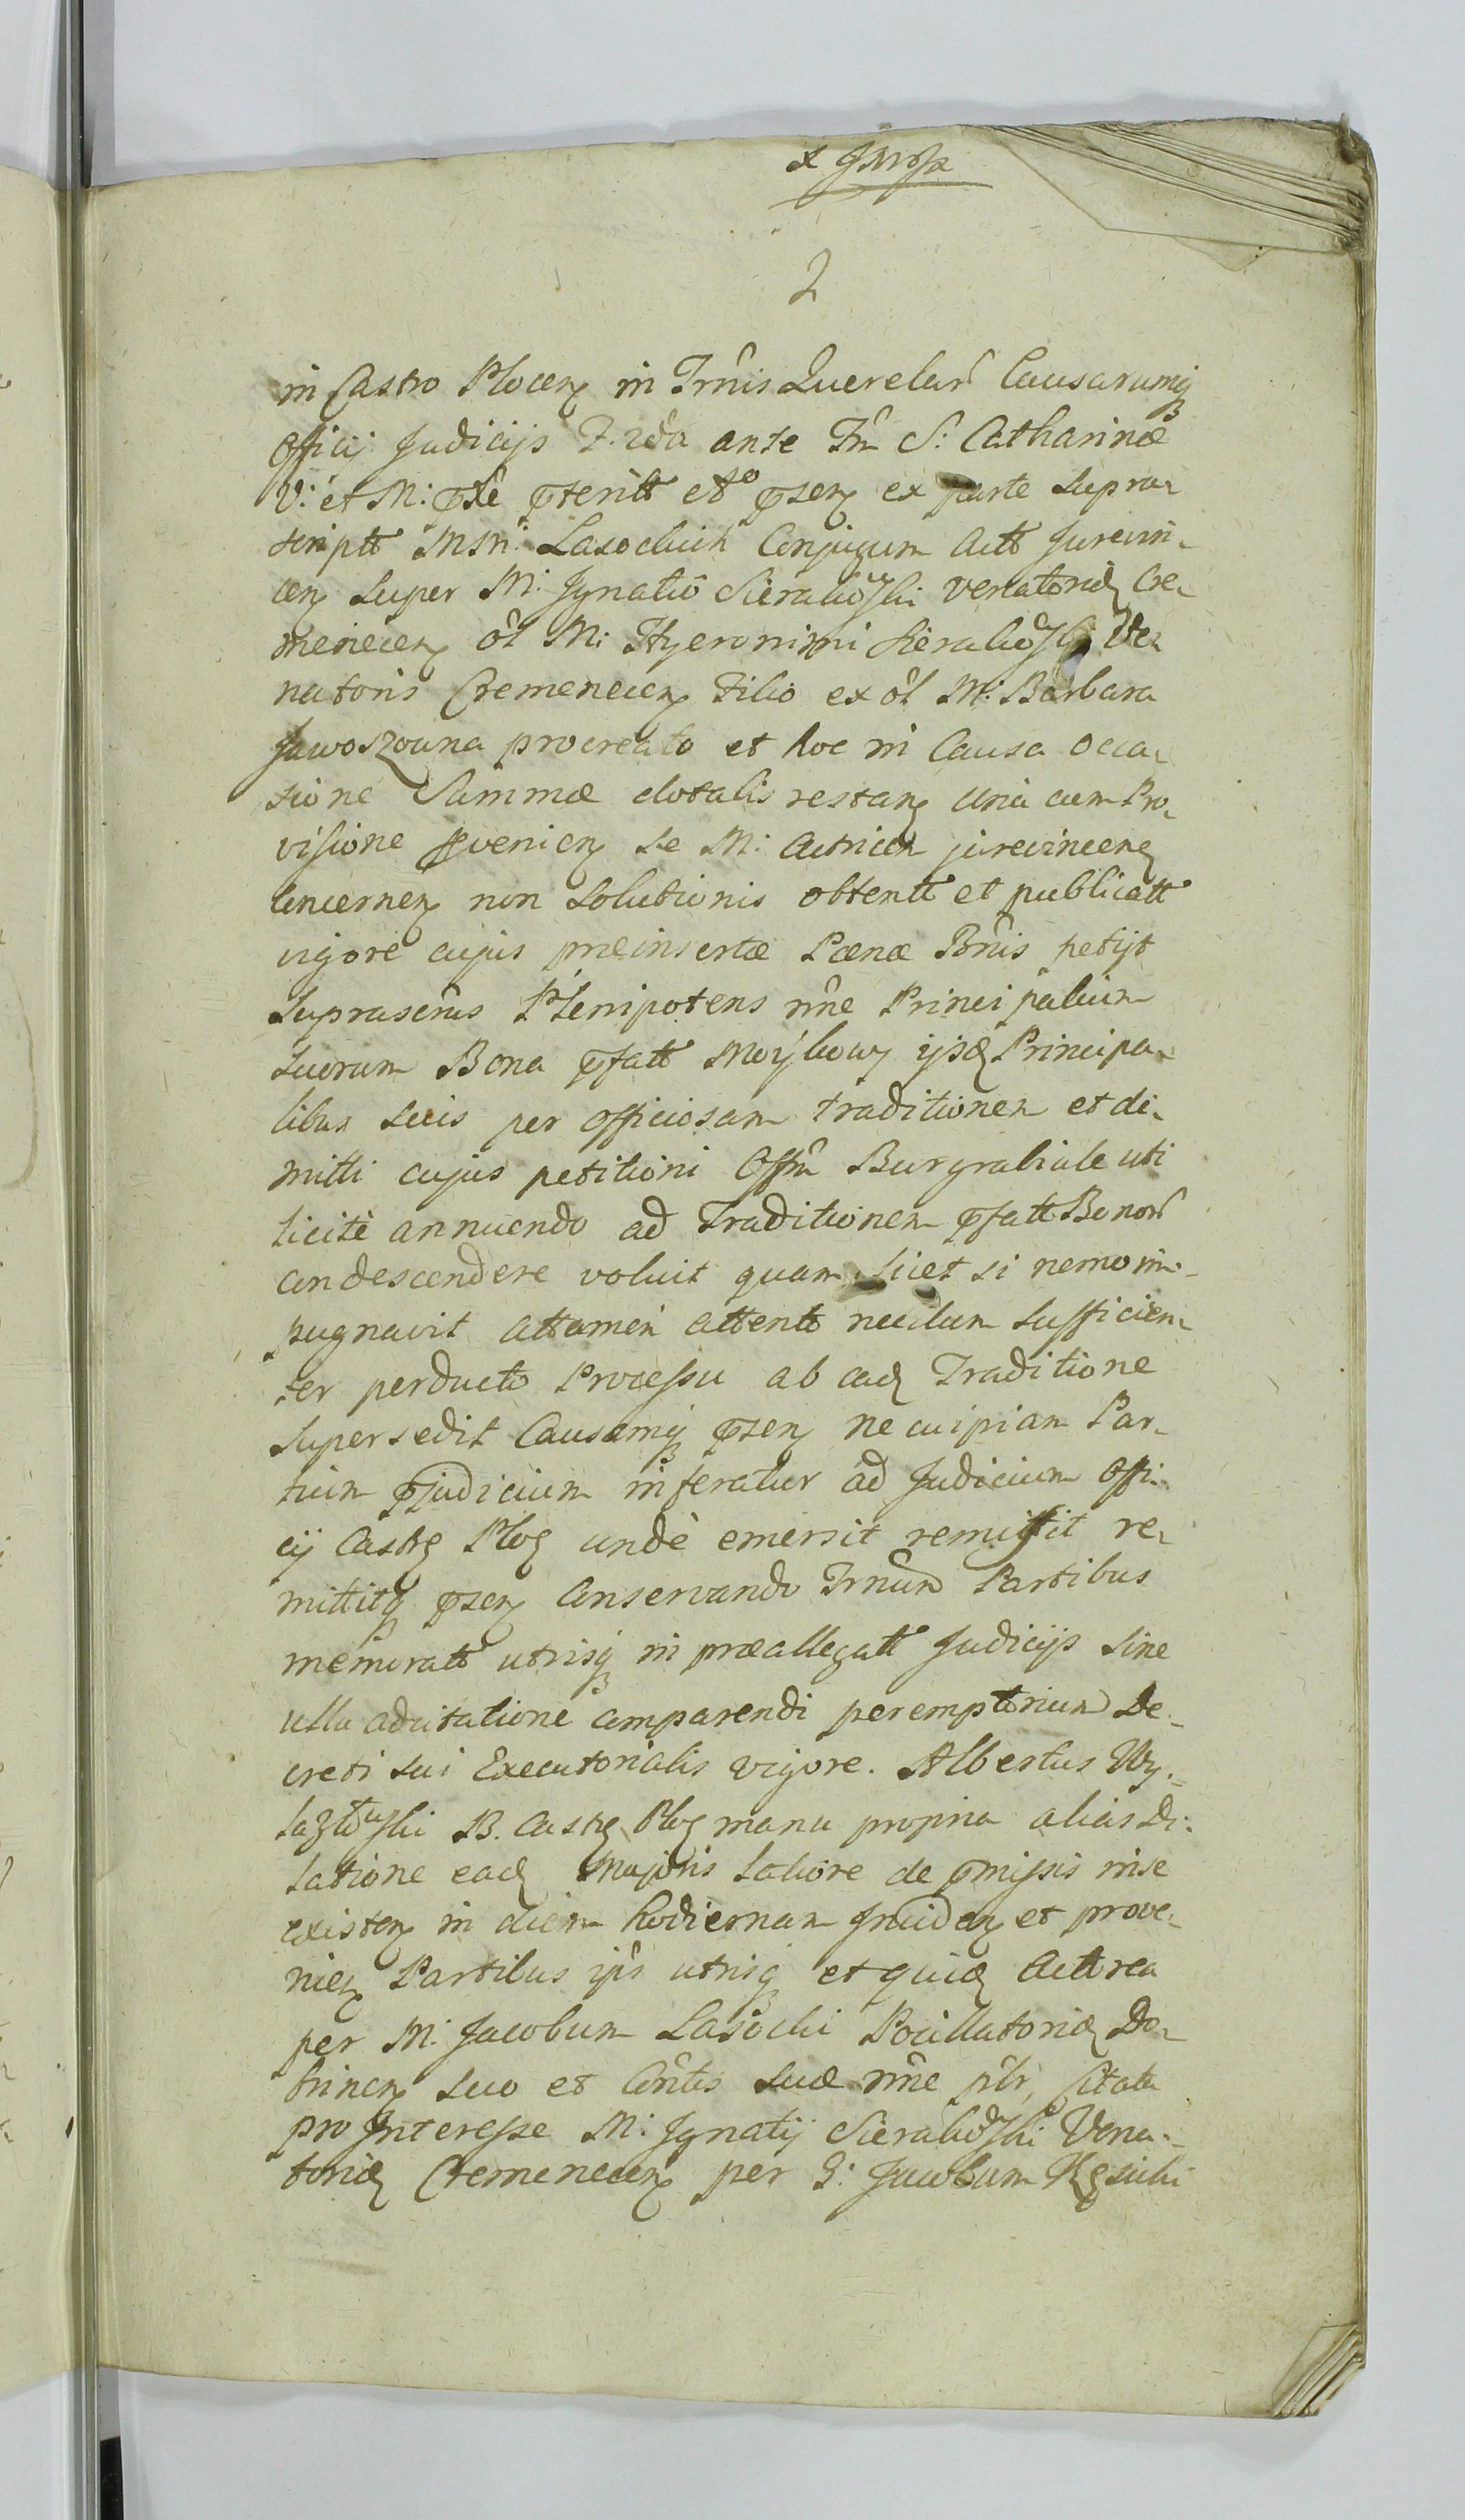 2
in Castro Plocen in Trnis Querelar Causarumq
Officij Judicijs F. 2da ante Fm S: Catharinæ
V: et M: pterit psen ex parte supra-
scriptt MM: Lasockich Conjugum Actt Jurevin-
cen super M: Jgnatio Sierakoski Venatorid Cre-
menecen ol M: Hyeronimi Sierakoski Ve-
natoris Cremenecen Filio ex ol M: Barbara
Jawoszowna procreato et hoc in Causa occa-
sione Summæ dotalis restan una cum Pro-
visione pvenien se M: Actricem jurevincen
concernen non solutionis obtentt et publicatt
vigore cujus præinsertæ Pœnæ Bnis petijt
suprascrus Plenipotens nne Principalium
suorum Bona pfatt Moykowy ijsd Principa-
libus suis per officiosam traditionem et di-
mitti cujus petitioni Offm Burgrabiale uti
licitè annuendo ad Traditionem pfatt Bonor
condescendere voluit quam licet si nemo im-
pugnavit attamen attento nedum sufficien-
ter perducto Processu ab ead Traditione
supersedit Causamq psen ne cuipiam Par-
tium pjudicium inferatur ad Judicium Offi-
cij Castr Ploc undè emersit remittit re-
mittitq psen conservando Trnum Partibus
memoratt utrisq in præallegatt Judicijs sine
ulla adcitatione comparendi peremptorium De-
creti sui Executorialis vigore. Albertus Wy-
laz B. Castr Ploc manu propria alias Di-
latione ead Majoris Labore de pmissis in se
existen in diem hodiernam Jnciden et prove-
nien Partibus ips utrisq et quid Acttorea
per M: Jacobum Lasocki Pocillatorid Do-
brinen suo et Contis suæ nne plr, Citata
pro Jnteresse M: Jgnatij Sierakoski Vena-
torid Cremenecen per G: Jacobum Kęsicki